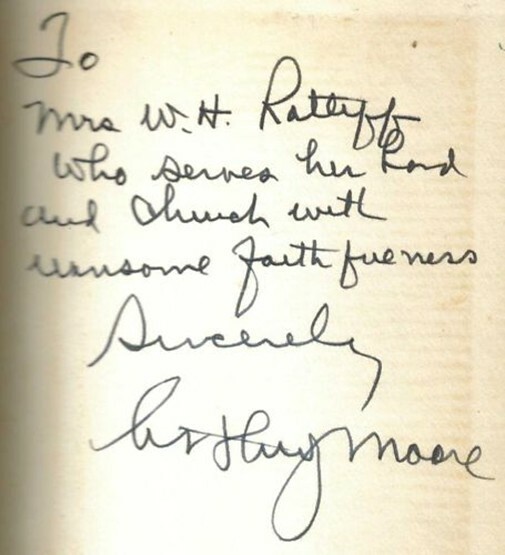 To
Mrs W. H. Ratliff
Who serves her Lord
and Church with
winsome faithfulness
Sincerely
Arthur J Moore